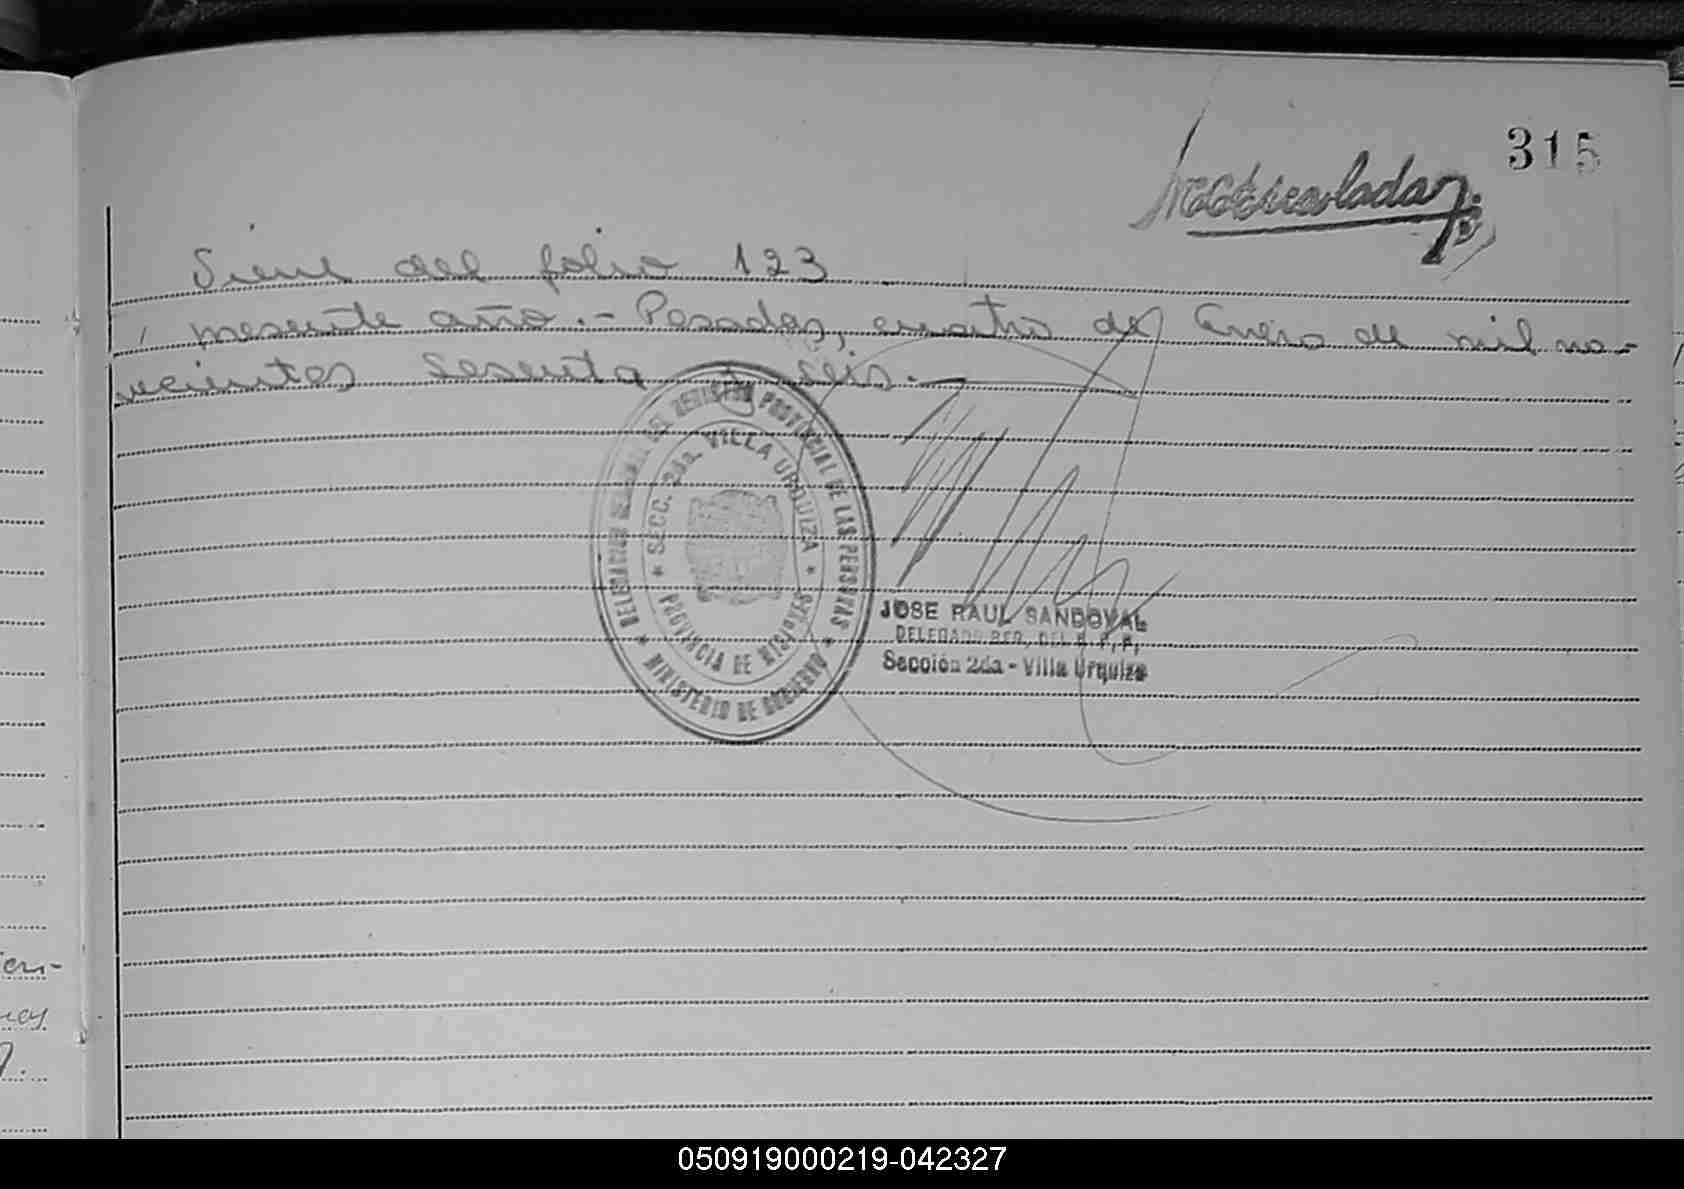 315
Viene del folio 123
presente año.- Posadas, cuatro de Enero de mil no-
vecientos sesenta y seis.-
DEL REGISTRO PROVINCIAL DE LAS PERSONAS
* SECC. 2da. VILLA URQUIZA *
PROVINCIA DE MISIONES
* MINISTERIO DE GOBIERNO *
JOSE RAUL SANDOVAL
DELEGADO SER. DEL R. P. P.
Sección 2da - Villa Urquiza
050919000219-042327